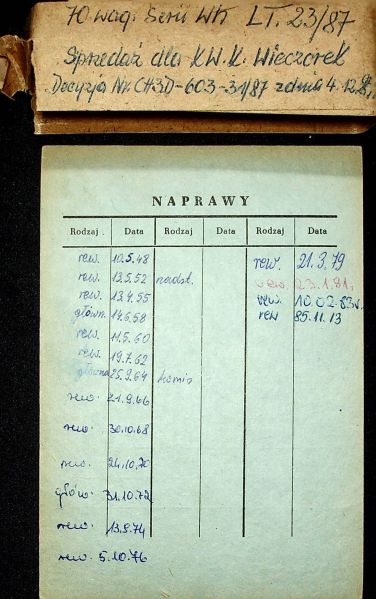 70 wag. Serii Wh LT. 23/87
Sprzedaż dla KW.K. Wieczorek
Decyzja Nr. CH3D-603-31/87 z dnia 4.12.87
NAPRAWY
Rodzaj Data Rodzaj Data Rodzaj Data
rew. 10.5.48 rew. 21.3.79
rew. 13.5.52 rew. 23.1.81.
rew. 13.4.55 rew. 10.02.83
główn. 14.6.58 rew 85.11.13
rew. 11.5.60
rew. 19.7.62
główna 25.9.64 komis
rew. 21.9.66
rew. 30.10.68
rew. 24.10.70
głów. 31.10.72
rew. 13.9.74
rew. 5.10.76